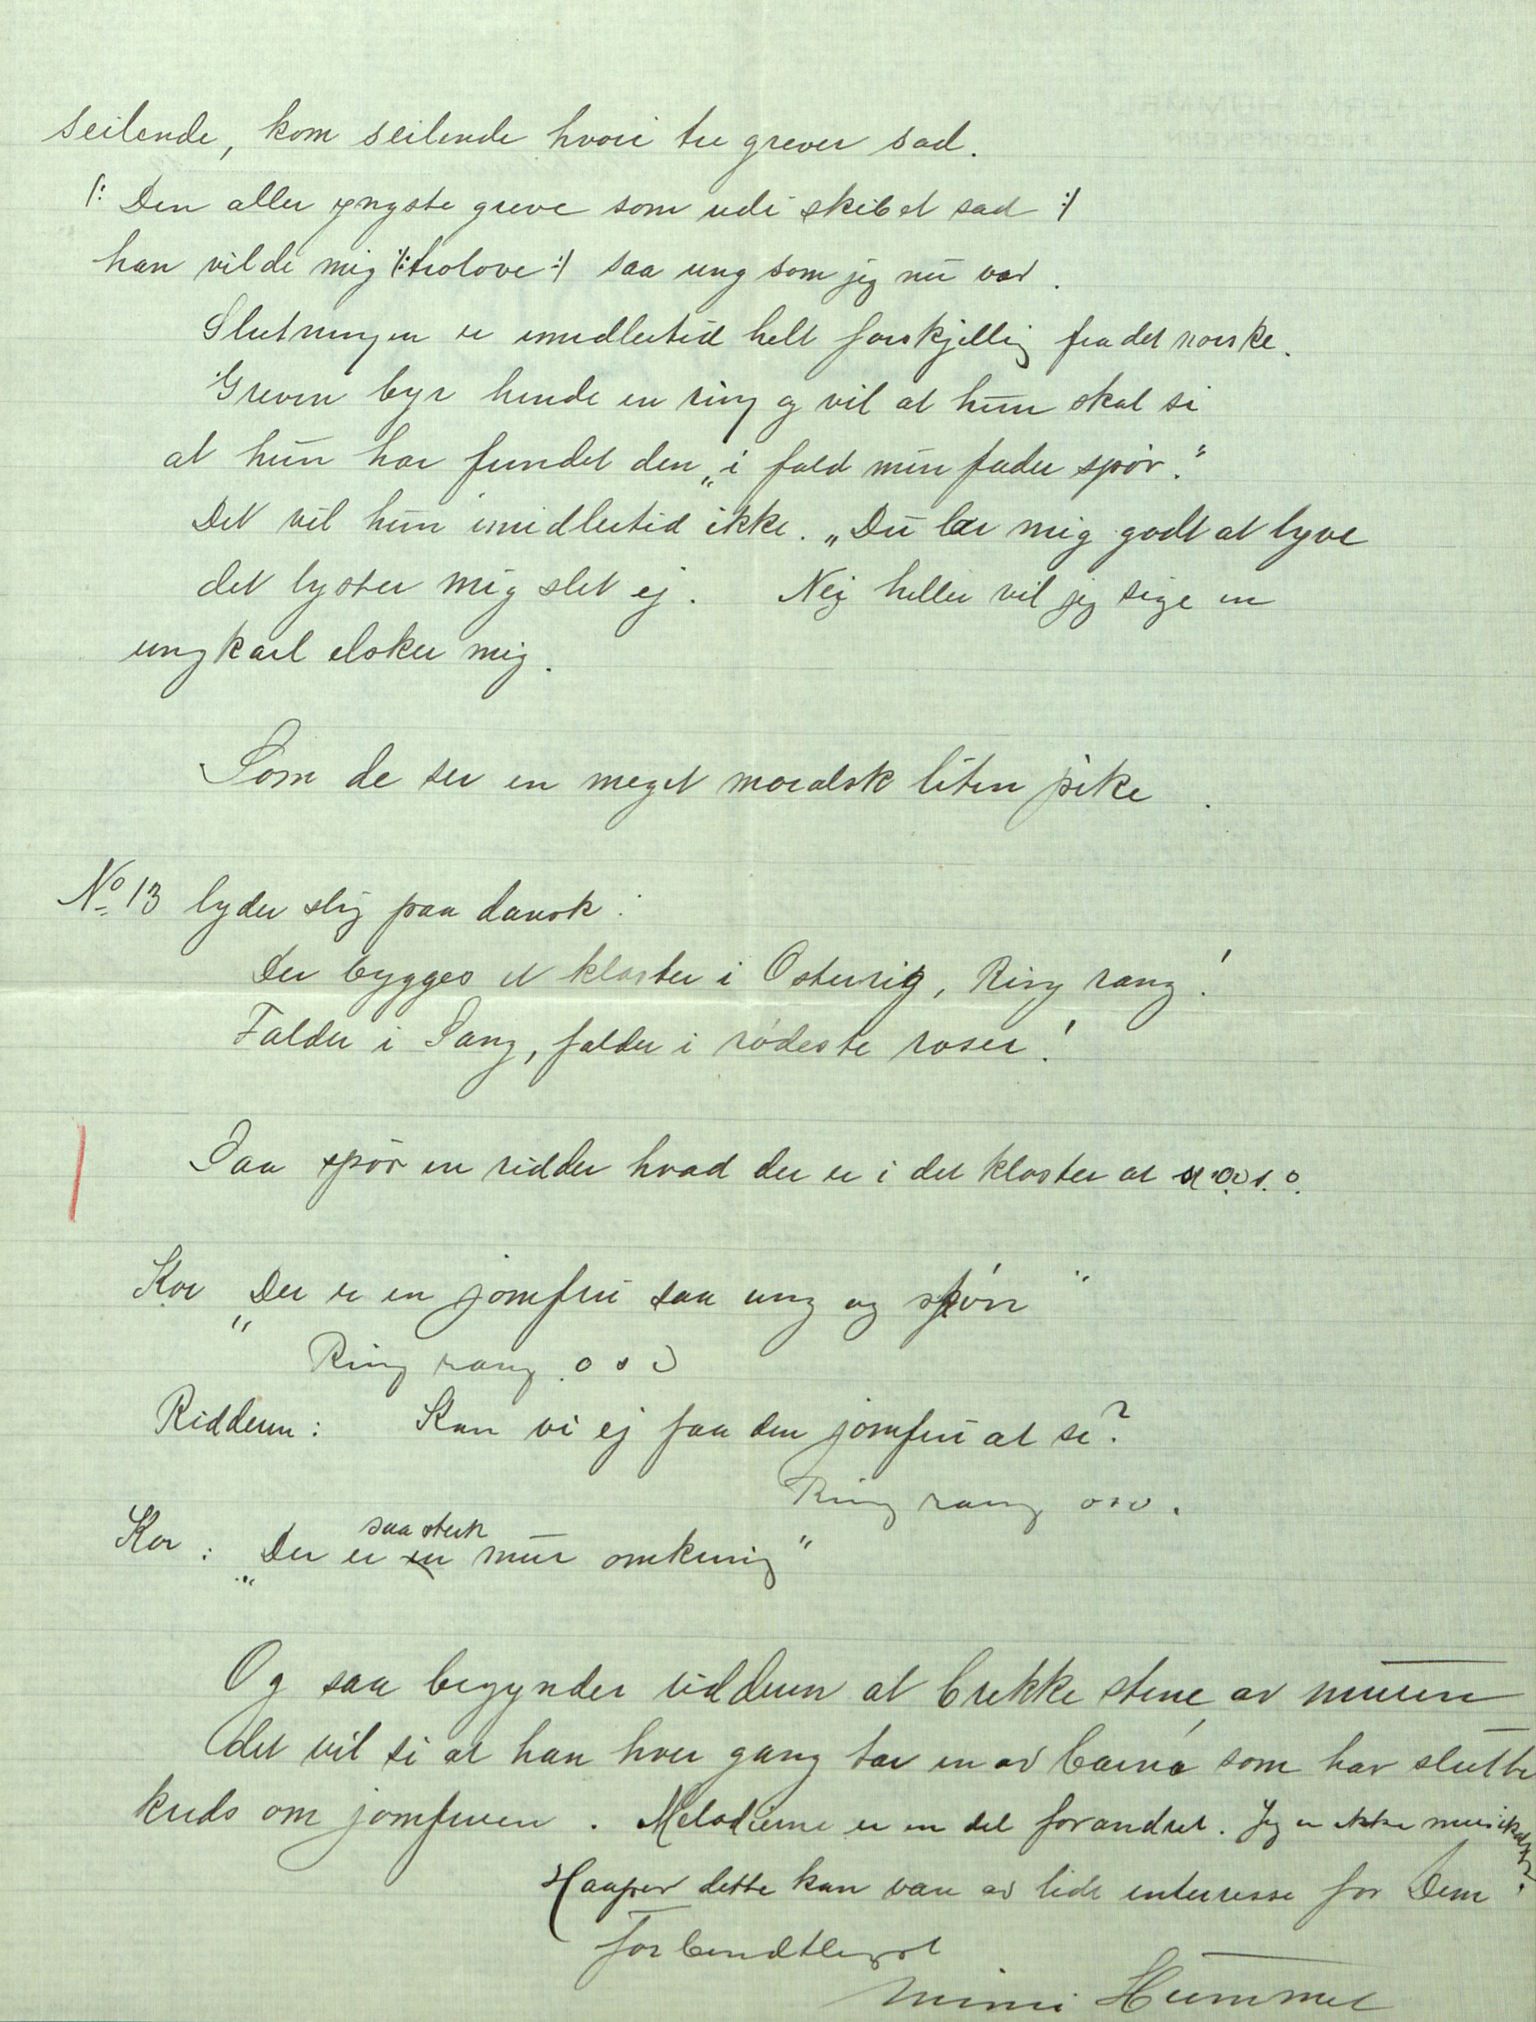 seilende, kom seilende hvori tre grever sad.
/: Den aller yngste greve som udi skibet sad :/
han vilde mig /: trolove :/ saa ung som jeg nu var.
Slutningen er imidlertid helt forskjellig fra det norske.
Greven byr hende en ring og vil at hun skal si
at hun har fundet den „i fald min fader spør."
Det vil hun imidlertid ikke. „Du lær mig godt at lyve
det lyster mig slet ej. Nej heller vil jeg sige en
ungkarl elsker mig.
Som de ser en meget moralsk liten pike.
No 13 lyder slig paa dansk:
Der bygges et kloster i Osterrig, Ring rang!
Falder i Sang, falder i rødeste roser!
Saa spør en ridder hvad der er i det kloster at
Kor „Der er en jomfru saa ung og skøn"
Ring rang o s v
Ridderen: Kan vi ej faa den jomfru at se?
Ring rang osv.
saa sterk
Kor: „Der er en mur omkring"
Og saa begynder ridderen at brekke stene av muren
det vil si at han hver gang tar en av barna som har slutte
kreds om jomfruen. Melodierne er en del forandret. Jeg er ikke musikalsk.
Haaper dette kan være av lidt interesse for Dem
Forbindtligst
Mimi Hummel